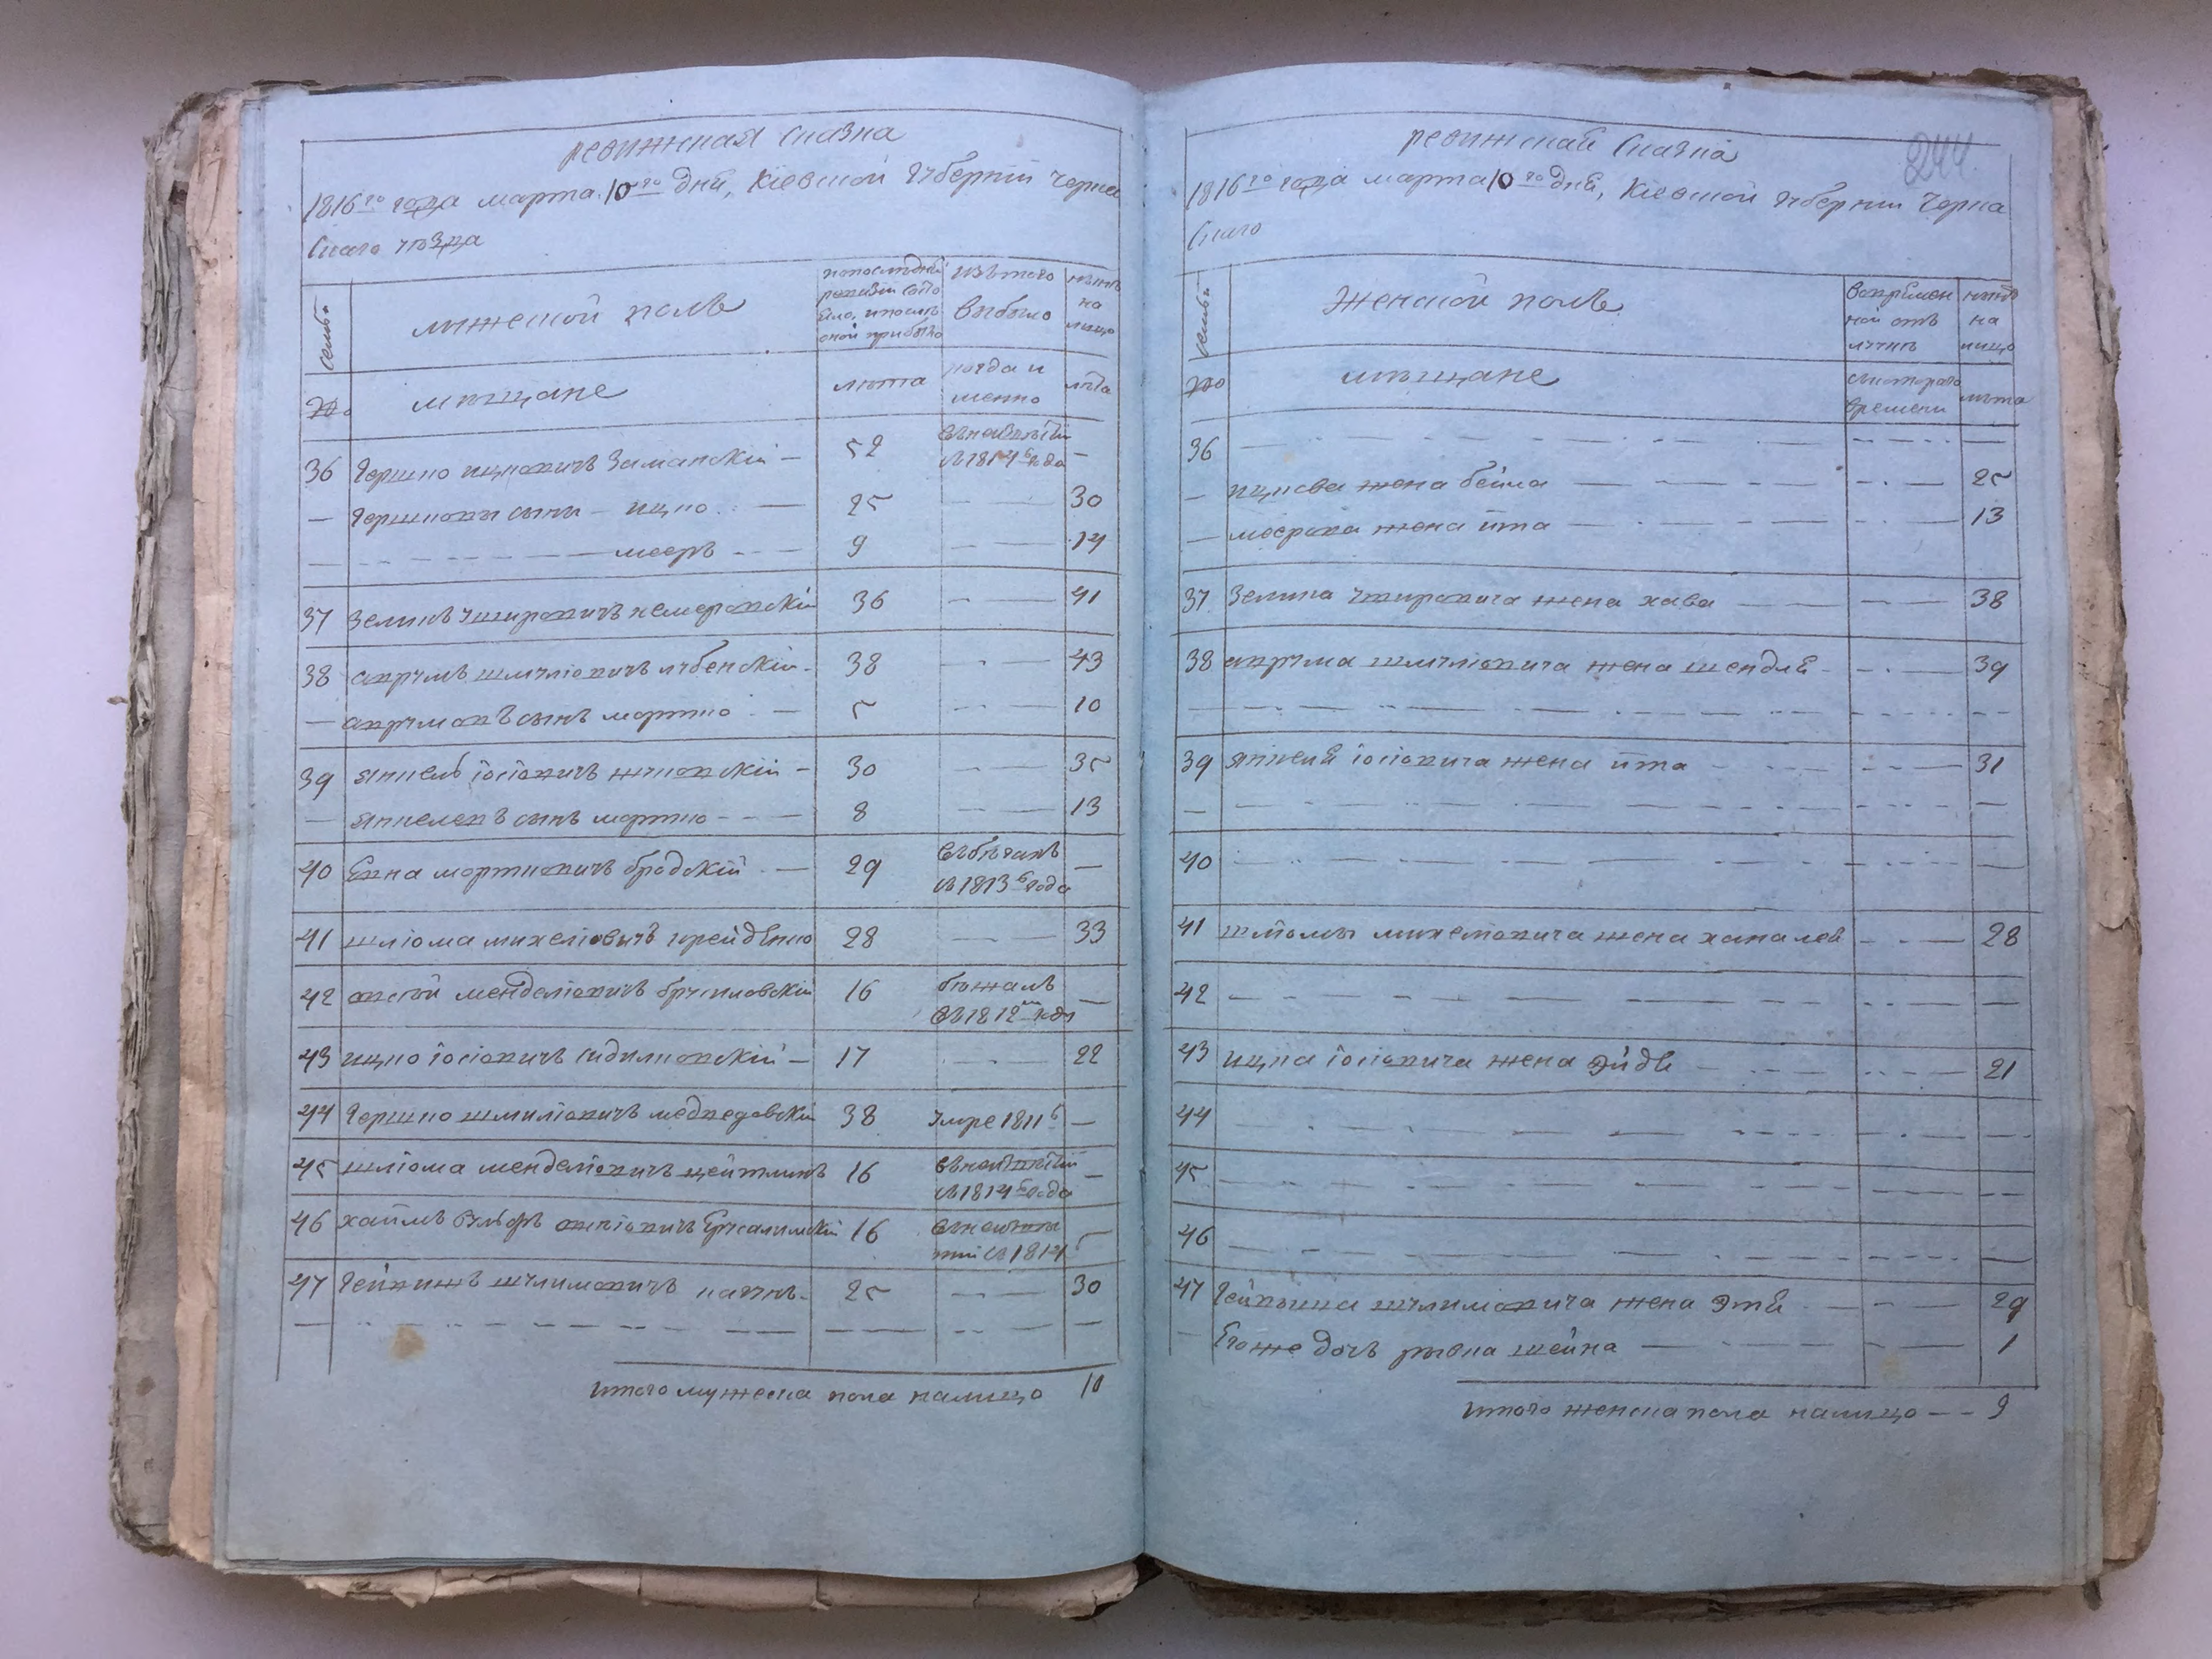 ревижская сказка
1816го года марта 10го дня, Кіевской губерніи Черка
скаго уѣзда
семьи
мужеской полъ
попослѣдней ревизіи состояло, и послѣ оной прибыло
изъ того выбыло
нынѣ на лицо
№
мѣщане
лѣта
когда и менно
лѣта
36 Гершко ицковичъ Заманскій — 52 —
въ 1814 года
— Гершковы сыны — ицко — 25 — 30
— мееръ — 9 — 14
37 Зеликъ ушировичъ немеровскій 36 — 41
38 аврумъ шмуліовичъ лубенскій — 38 — 43
— аврумовъ сынъ мортко — 5 — 10
39 янкель іосіовичъ жуковскій — 30 — 35
— янкелевъ сынъ мортко — 8 — 13
40 Екна мортковичъ бродскій — 29 въ бѣгахъ —
съ 1813 года
41 шліома михеліовичъ крейденко 28 — 33
42 овсѣй менделіовичъ брусиловскій 16 бѣжалъ —
въ 1812м году
43 ицко іосіовичъ сидилковскій — 17 — 22
44 Гершко шмиліовичъ медведовскій 38 умре 1811 —
45 шліома менделіовичъ цейтлинъ 16 —
съ 1814 года
46 хаимъ вульфъ овсіовичъ Ерусалимскій 16 —
съ 1814
47 Гейнишъ шулимовичъ каганъ — 25 — 30
итого мужеска пола налицо 10
ревижская Сказка
244
1816го года марта 10го дня, Кіевской губерніи Черка
скаго
семьи
Женской полъ
вовремен
ной отъ
лучкѣ
нынѣ
на
лицо
№
мѣщане
съ котораго
времени
лѣта
36 — — —
— ицкова жена бейла — — 25
— меерова жена ита — — 13
37 Зелика ушировича жена хава — — 38
38 аврума шмуліовича жена шендля — — 39
39 янкеля іосіовича жена ита — — 31
40 — — —
41 шліомы михеліовича жена хана лея — — 28
42 — — —
43 ицка іосіовича жена Эйдя — — 21
44 — — —
45 — — —
46 — — —
47 Гейниша шулимовича жена Этя — — 29
Егоже дочь рывка шейна — — 1
итого женска пола налицо — — 9